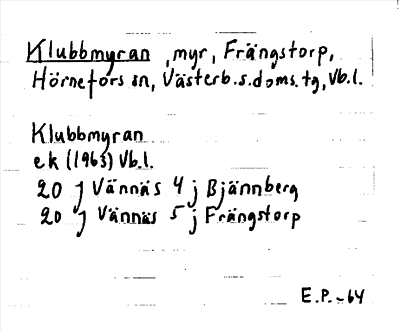 Klubbmyran, myr, Frängstorp,
Hörnefors sn, Västerb.s.doms.tg, Vb.l.
Klubbmyran
ek (1963) Vb.l.
20 J Vännäs 4 j Bjännberg
20 J Vännäs 5 j Frängstorp
E.P. -64